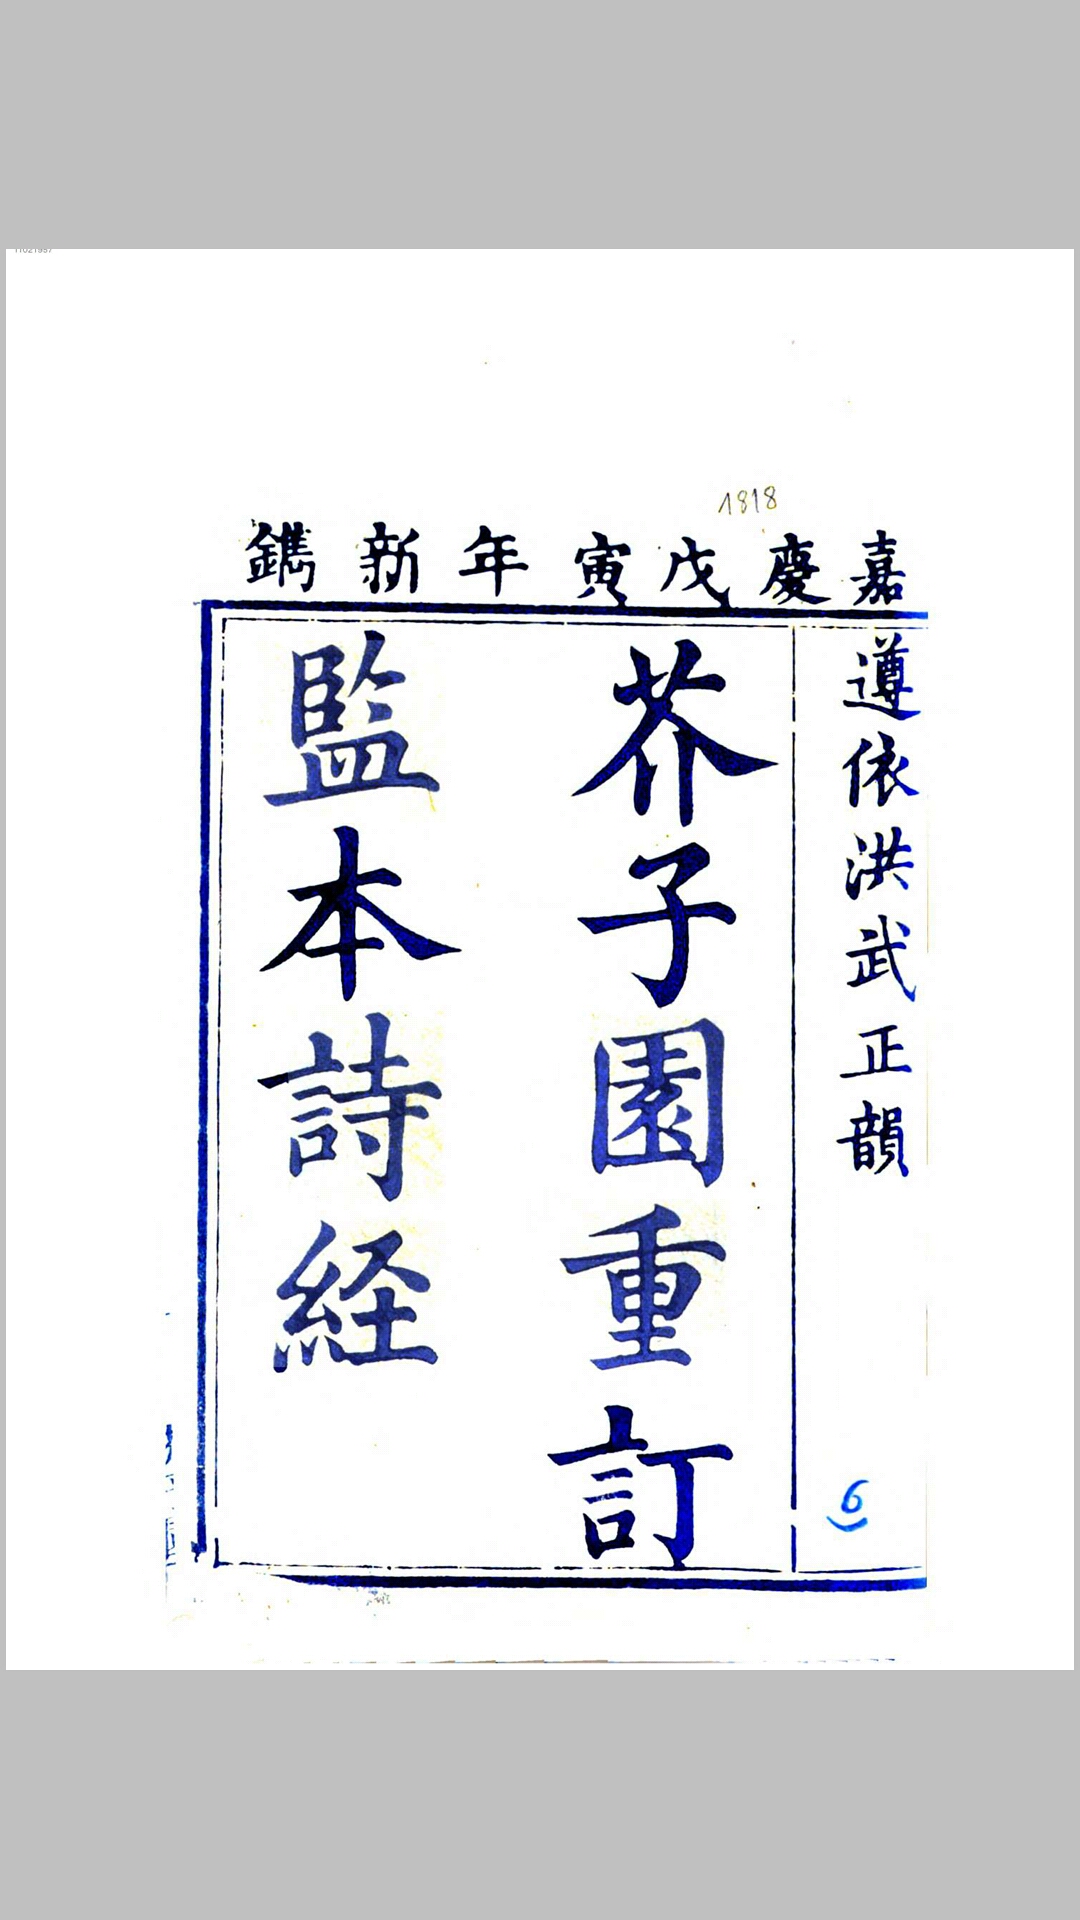 1818
嘉慶戊寅年新鐫
遵依洪武正韻
芥子園重訂
監本詩経
6